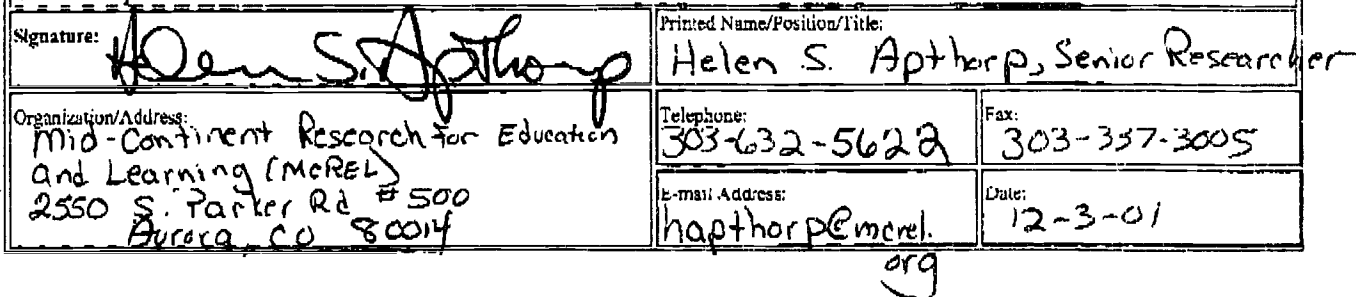 Signature:
Helen S. Apthorp
Printed Name/Position/Title:
Helen S. Apthorp, Senior Researcher
Organization/Address:
Mid-Continent Research for Education
and Learning (McREL)
2550 S. Parker Rd #500
Aurora, CO 80014
Telephone:
303-632-5622
Fax:
303-337-3005
E-mail Address:
hapthorp@mcrel.
org
Date:
12-3-01